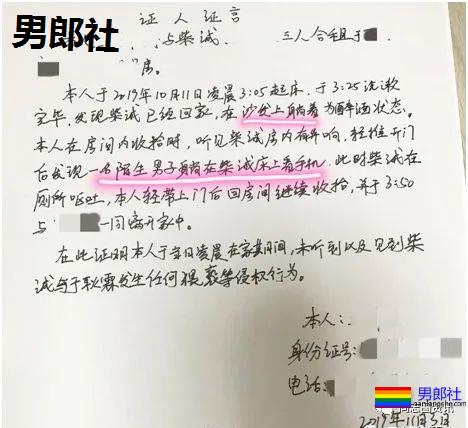 男郎社
证人证言
与柴诚.
三人合租于
房.
本人于2019年10月11日凌晨3:05起床,于3:25洗漱
完毕,发现柴诚已经回家,在沙发上躺着为醉酒状态。
本人在房间内收拾时,听见柴诚房内有异响,轻推开门
后发现一名陌生男子躺在柴诚床上看手机,此时柴诚在
厕所呕吐,本人轻带上门后回房间继续收拾,并于3:50
与 一同离开家中。
在此证明本人于当日凌晨在家期间,未听到以及见到柴
诚与于耿霖发生任何猥亵等侵权行为。
本人:
身份证号:
电话:
男郎社
nanlangshe.com
2019年11月5日